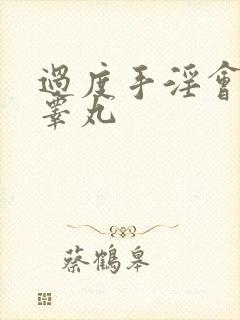 過度手淫會
睪丸
蔡鶴皋